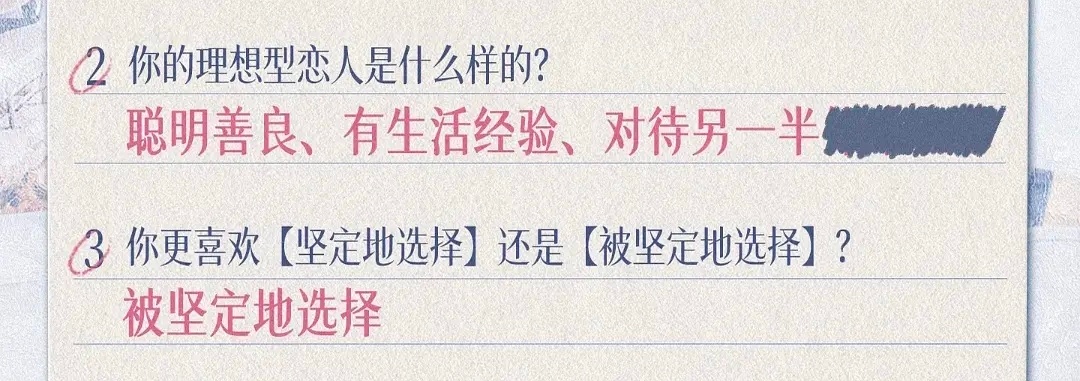 2 你的理想型恋人是什么样的?
聪明善良、有生活经验、对待另一半
3 你更喜欢【坚定地选择】还是【被坚定地选择】?
被坚定地选择